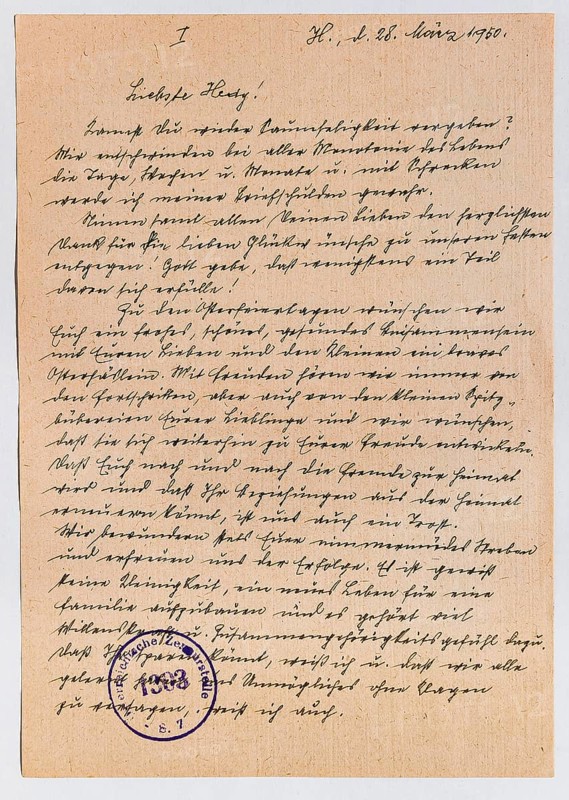 I
H., d. 28. März 1950.
Liebste Hedy!
Kannst Du wieder Saumseligkeit vergeben?
Wir entschwinden bei aller Monotonie des Lebens
die Tage, Wochen u. Monate u. mit Schrecken
werde ich meiner Briefschulden gewahr.
Nimm samt allen Deinen Lieben den herzlichsten
Dank für Die lieben Glückwünsche zu unseren Festen
entgegen! Gott gebe, daß wenigstens ein Teil
davon sich erfülle!
Zu den Osterfeiertagen wünschen wir
Euch ein frohes, schönes, gesundes Beisammensein
mit Euren Lieben und den Kleinen ein braves
Osterhäslein. Mit Freuden hören wir immer von
den Fortschritten, aber auch von den kleinen Spitz-
bübereien Eurer Lieblinge und wir wünschen,
daß sie sich weiterhin zu Eurer Freude entwickeln.
Daß Euch nach und nach die Fremde zur Heimat
wird und daß Ihr Beziehungen aus der Heimat
erneuern könnt, ist uns auch ein Trost.
Wir bewundern stets Euer nimmermüdes Streben
und erfreuen uns der Erfolge. Es ist gewiß
keine Kleinigkeit, ein neues Leben für eine
Familie aufzubauen und es gehört viel
u. Zusammengehörigkeitsgefühl dazu.
Daß Ihr könnt, weiß ich u. daß wir alle
Unmögliches ohne Klagen
zu versagen, weiß ich auch.
Österreichische Zensurstelle
1383
S. 7